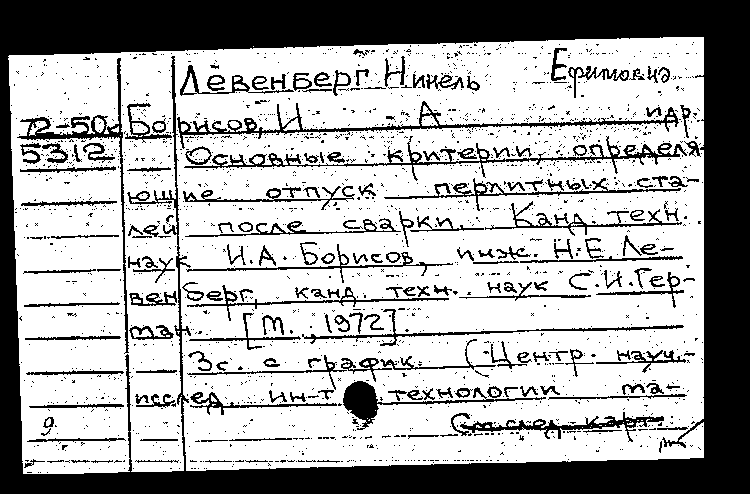 Левенберг Нинель Ефимовна
72-50с Борисов, И А и др
5312 Основные критерии, определя-
ющие отпуск перлитных ста-
лей после сварки. Канд. техн.
наук И.А. Борисов, инж. Н.Е. Ле-
венберг, канд. техн. наук С.И. Гер-
ман. [М., 1972].
3с. с график. (Центр. науч.-
исслед. ин-т технологии ма-
См. след. карт.
9